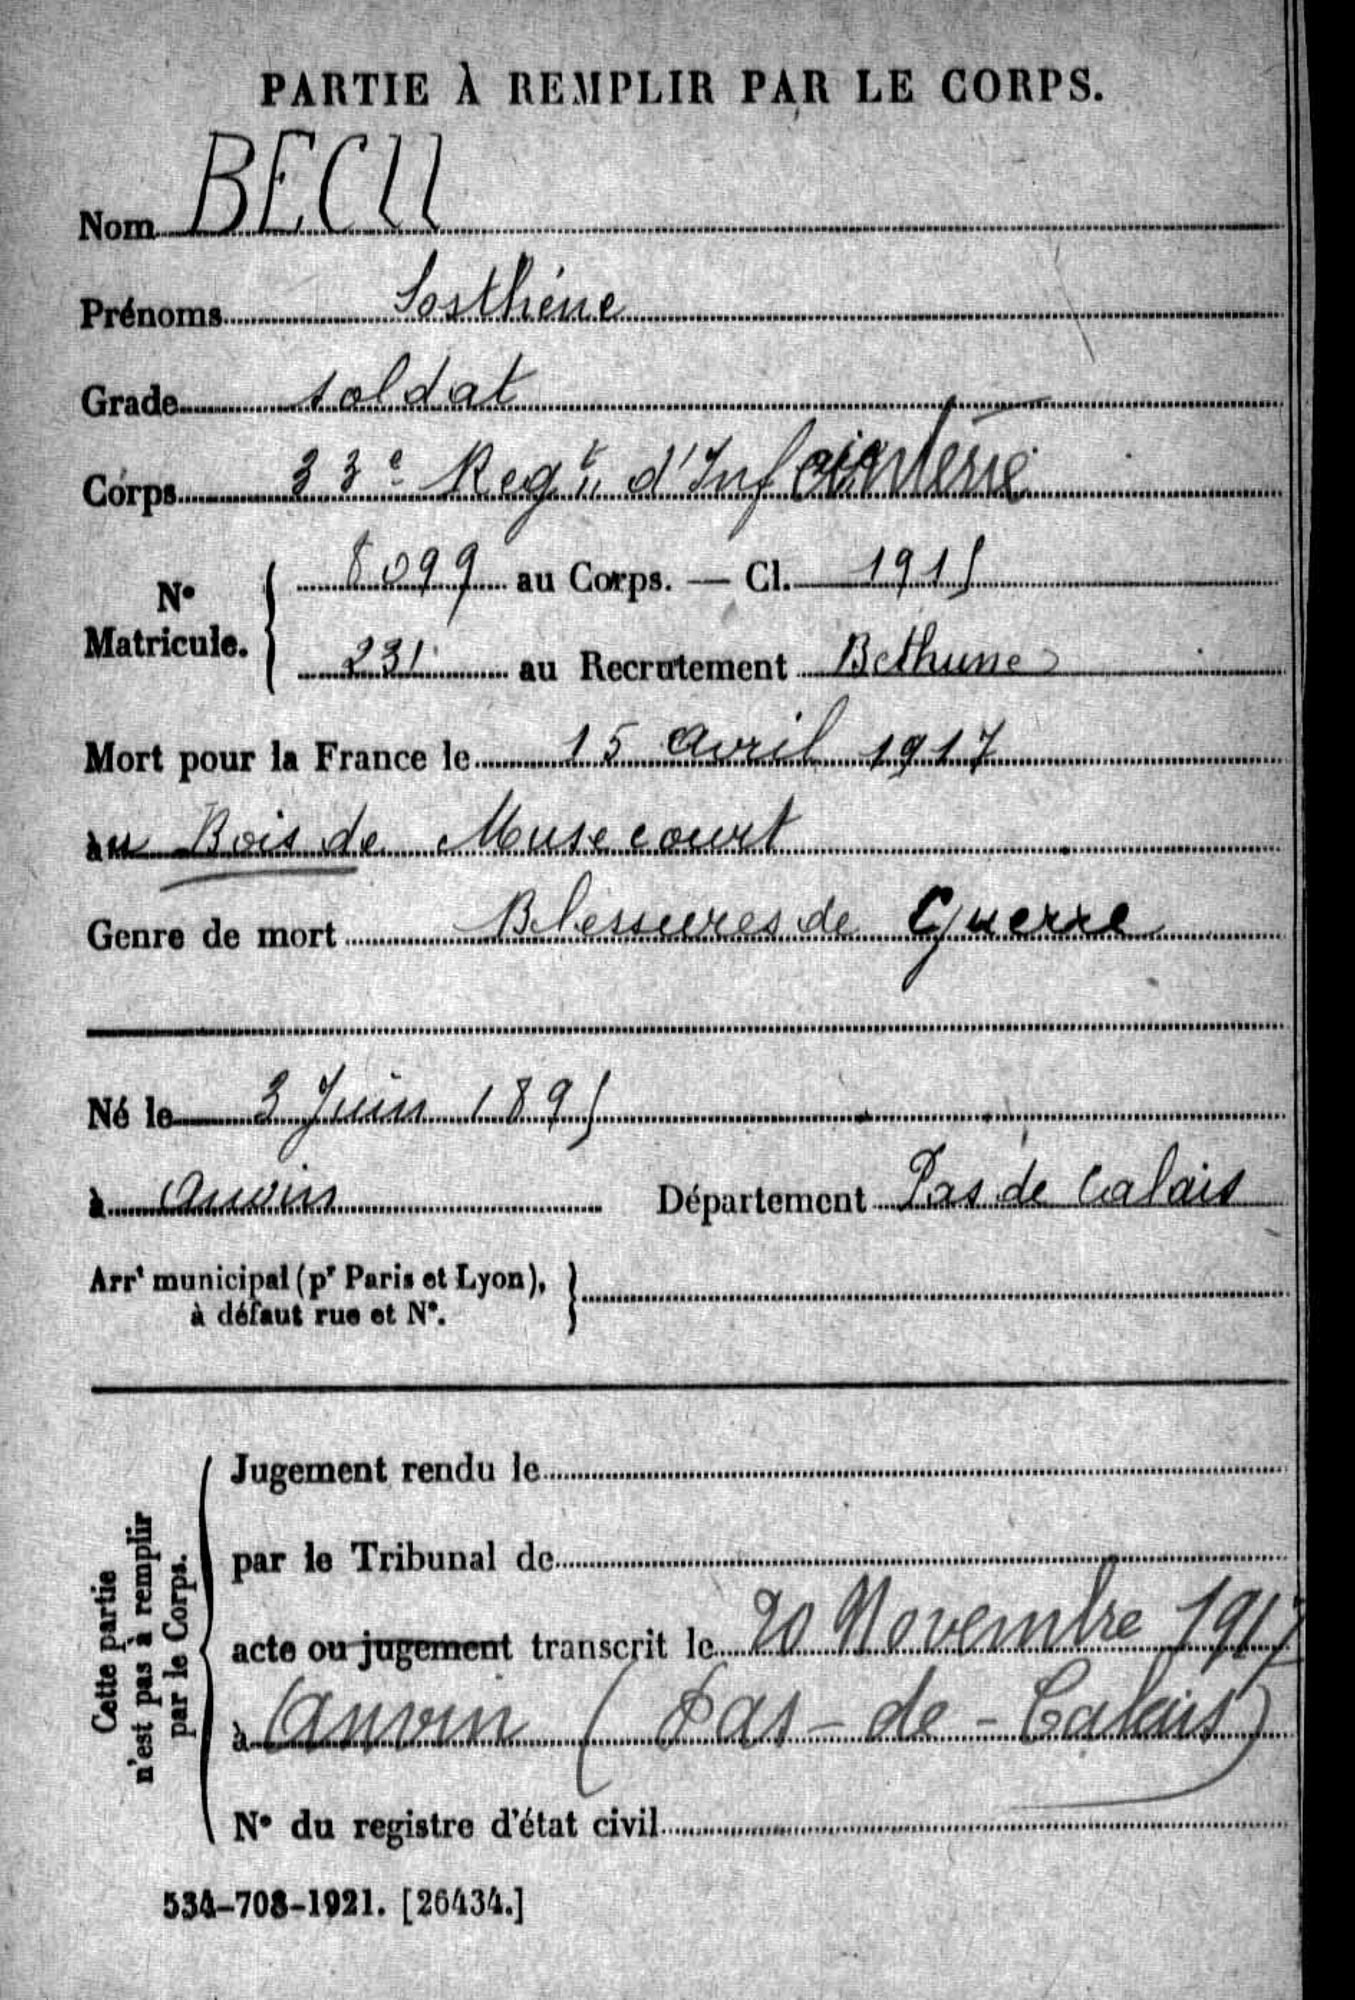 PARTIE À REMPLIR PAR LE CORPS.
Nom BECU
Prénoms Sosthène
Grade soldat
Corps 33e Regt d'Infanterie
N° Matricule. { 8099 au Corps. — Cl. 1915
231 au Recrutement Bethune
Mort pour la France le 15 avril 1917
au Bois de Musecourt
Genre de mort Blessures de Guerre
Né le 3 Juin 1895
à Anvin Département Pas de Calais
Arrt municipal (pr Paris et Lyon), }
à défaut rue et N°.
Cette partie
n'est pas à remplir
par le Corps.
Jugement rendu le
par le Tribunal de
acte ou jugement transcrit le 20 Novembre 1917
à Anvin (Pas-de-Calais)
N° du registre d'état civil
534-708-1921. [26434.]